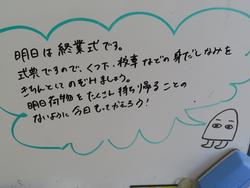 明日は終業式です。
式典ですので、くつ下、校章などの身だしなみを
きちんとしてのぞみましょう。
明日荷物をたくさん持ち帰ることの
ないように今日もってかえろう!